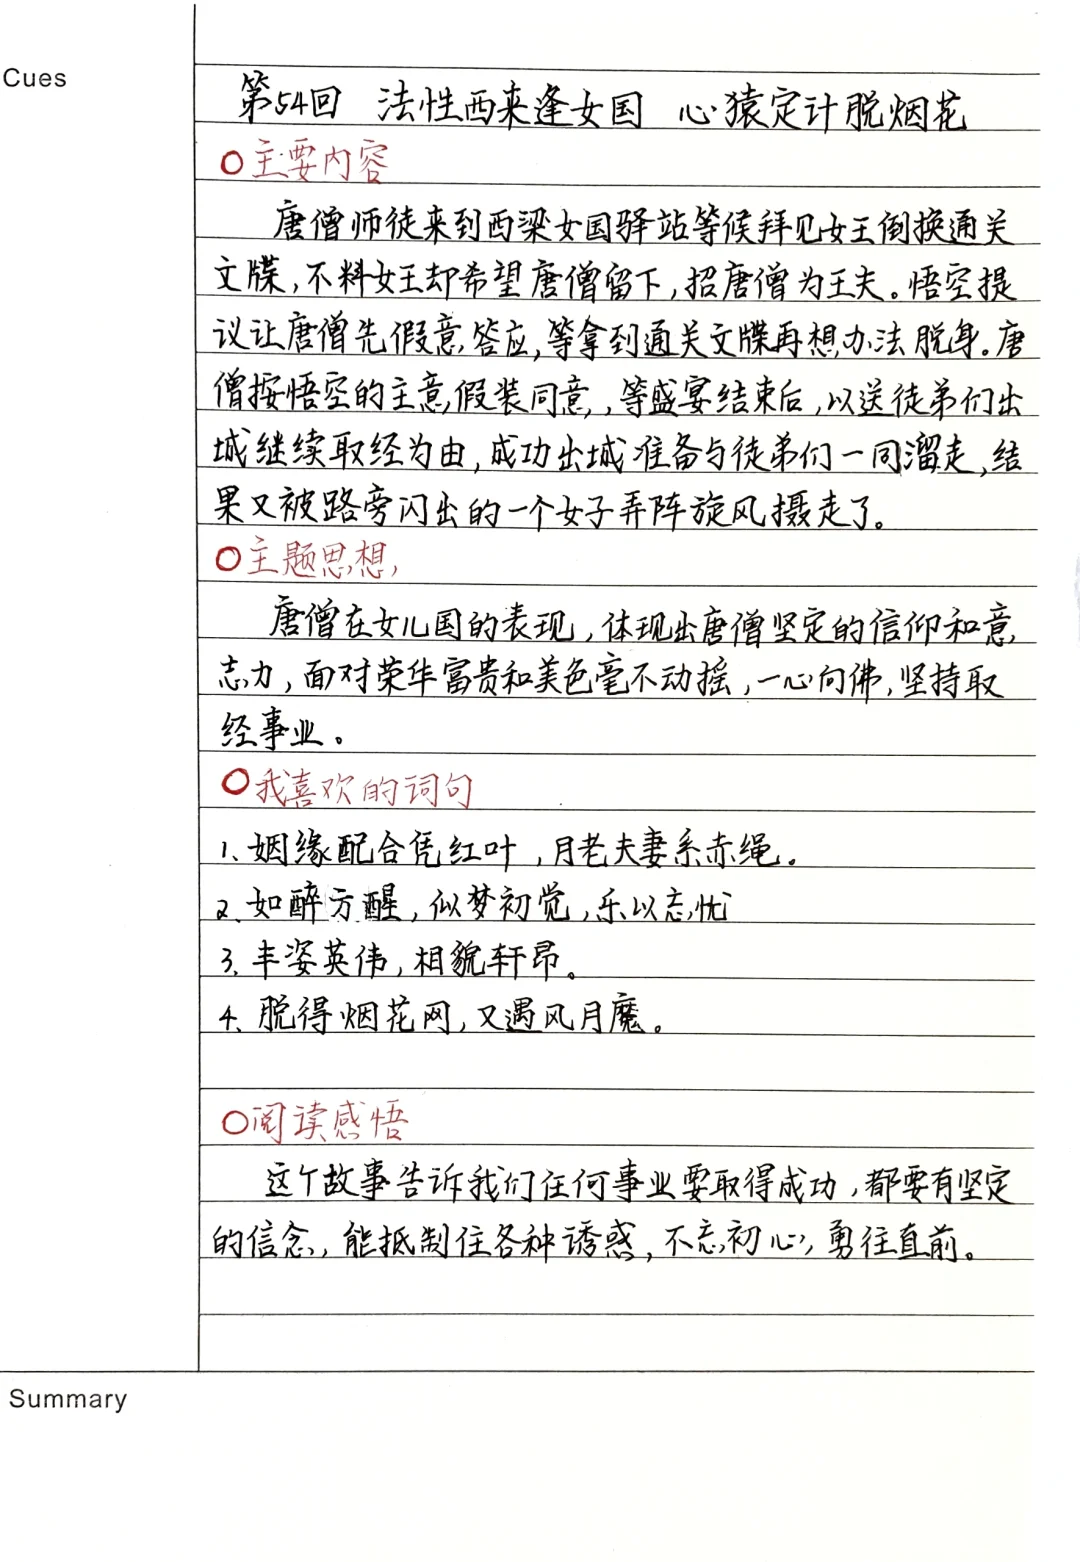 Cues
第54回 法性西来逢女国 心猿定计脱烟花
○主要内容
唐僧师徒来到西梁女国驿站等候拜见女王倒换通关
文牒,不料女王却希望唐僧留下,招唐僧为王夫。悟空提
议让唐僧先假意答应,等拿到通关文牒再想办法脱身。唐
僧按悟空的主意假装同意,等盛宴结束后,以送徒弟们出
城继续取经为由,成功出城准备与徒弟们一同溜走,结
果又被路旁闪出的一个女子弄阵旋风摄走了。
○主题思想
唐僧在女儿国的表现,体现出唐僧坚定的信仰和意
志力,面对荣华富贵和美色毫不动摇,一心向佛,坚持取
经事业。
○我喜欢的词句
1、姻缘配合凭红叶,月老夫妻系赤绳。
2、如醉方醒,似梦初觉,乐以忘忧
3、丰姿英伟,相貌轩昂。
4、脱得烟花网,又遇风月魔。
○阅读感悟
这个故事告诉我们任何事业要取得成功,都要有坚定
的信念,能抵制住各种诱惑,不忘初心,勇往直前。
Summary